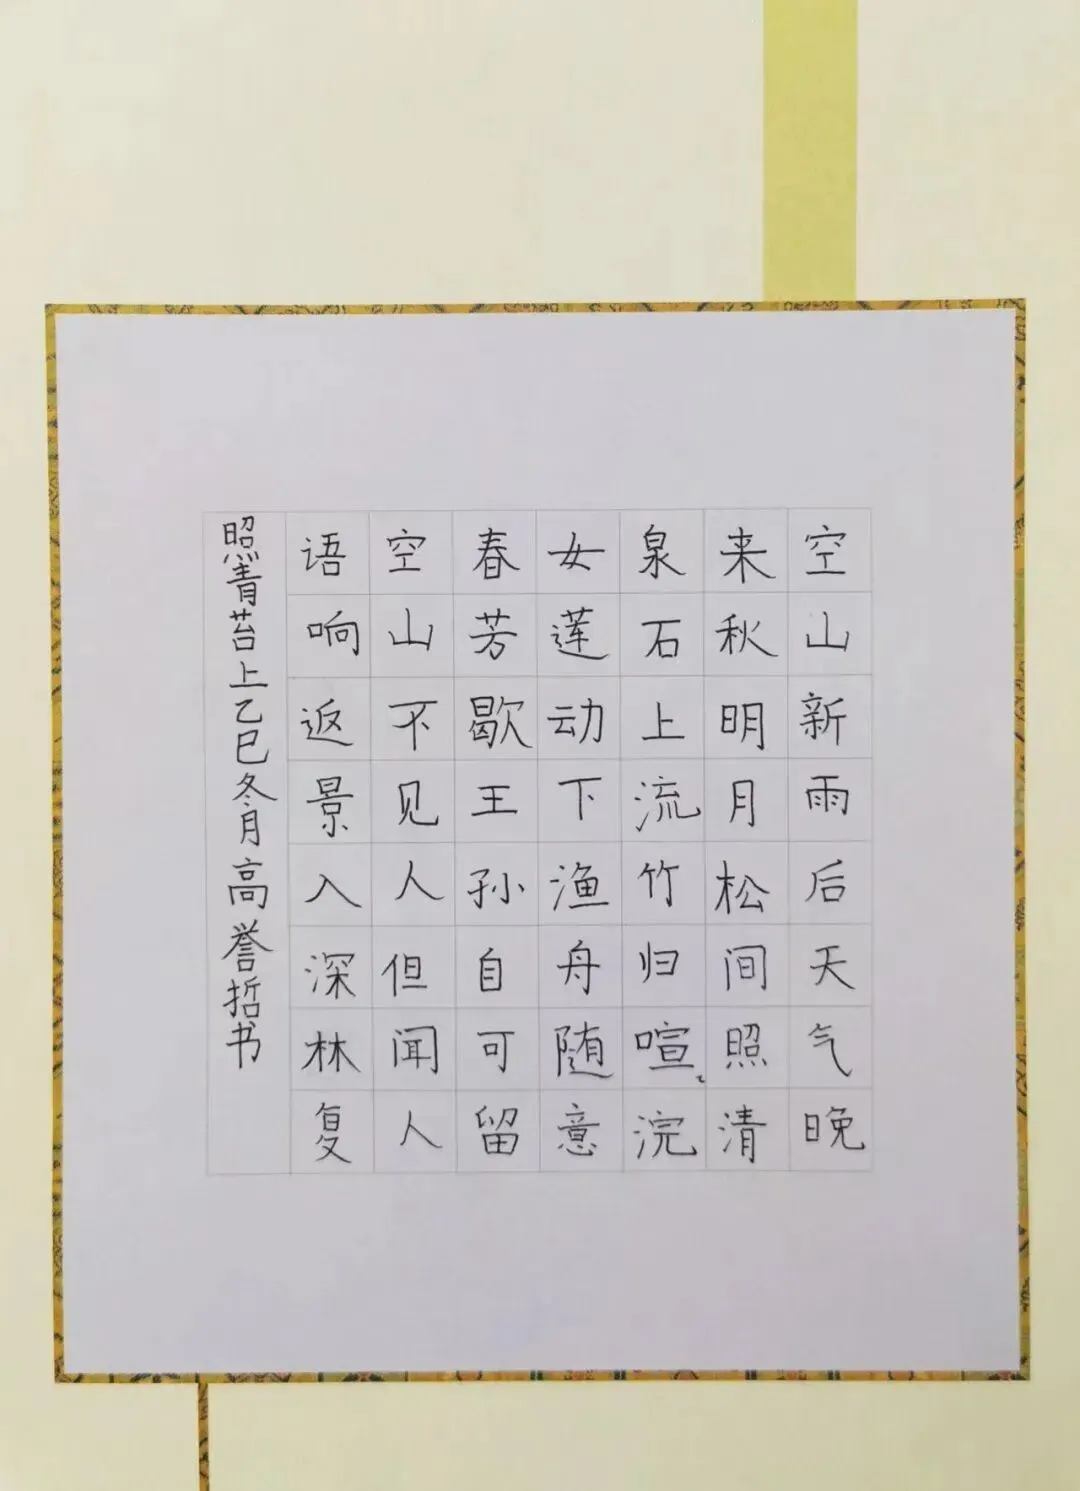 空山新雨后天气晚
来秋明月松间照清
泉石上流竹归喧浣
女莲动下渔舟随意
春芳歇王孙自可留
空山不见人但闻人
语响返景入深林复
照青苔上乙巳冬月高誉哲书